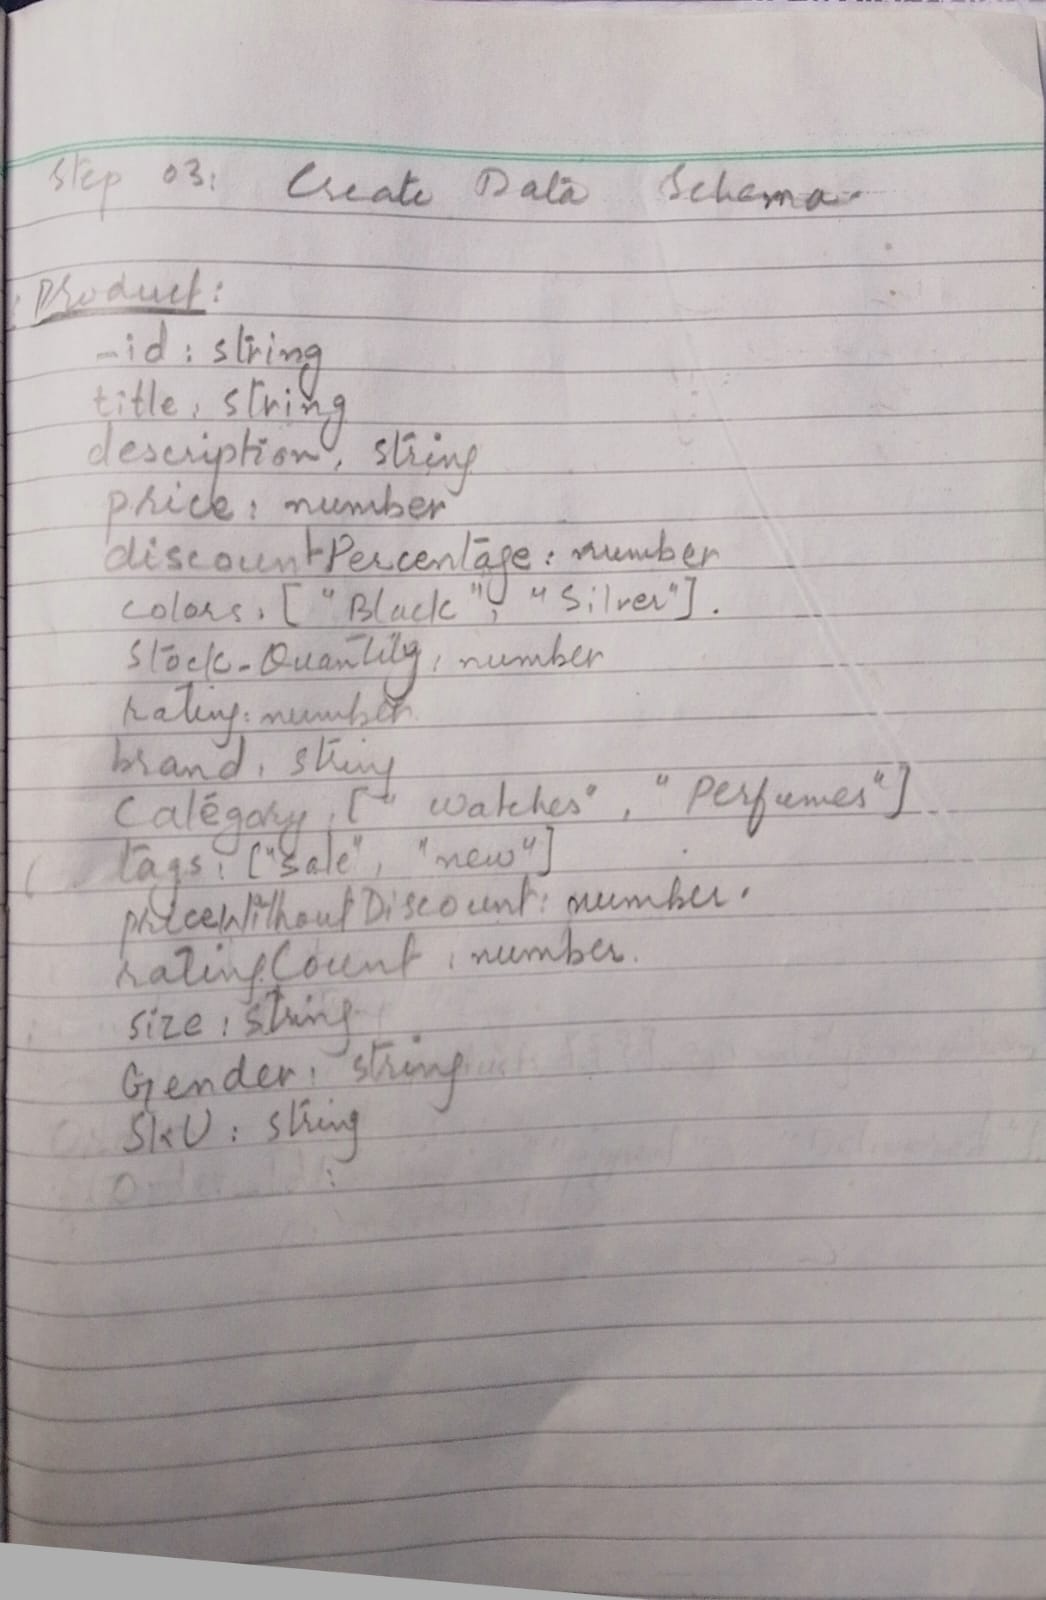 Step 03: Create Data Schema
Product:
_id: string
title: string
description: string
price: number
discountPercentage: number
colors: ["Black", "Silver"].
Stock-Quantity: number
rating: number
brand: string
Category: ["watches", "Perfumes"]
tags: ["Sale", "new"]
priceWithoutDiscount: number.
ratingCount: number.
size: string
Gender: string
SKU: string